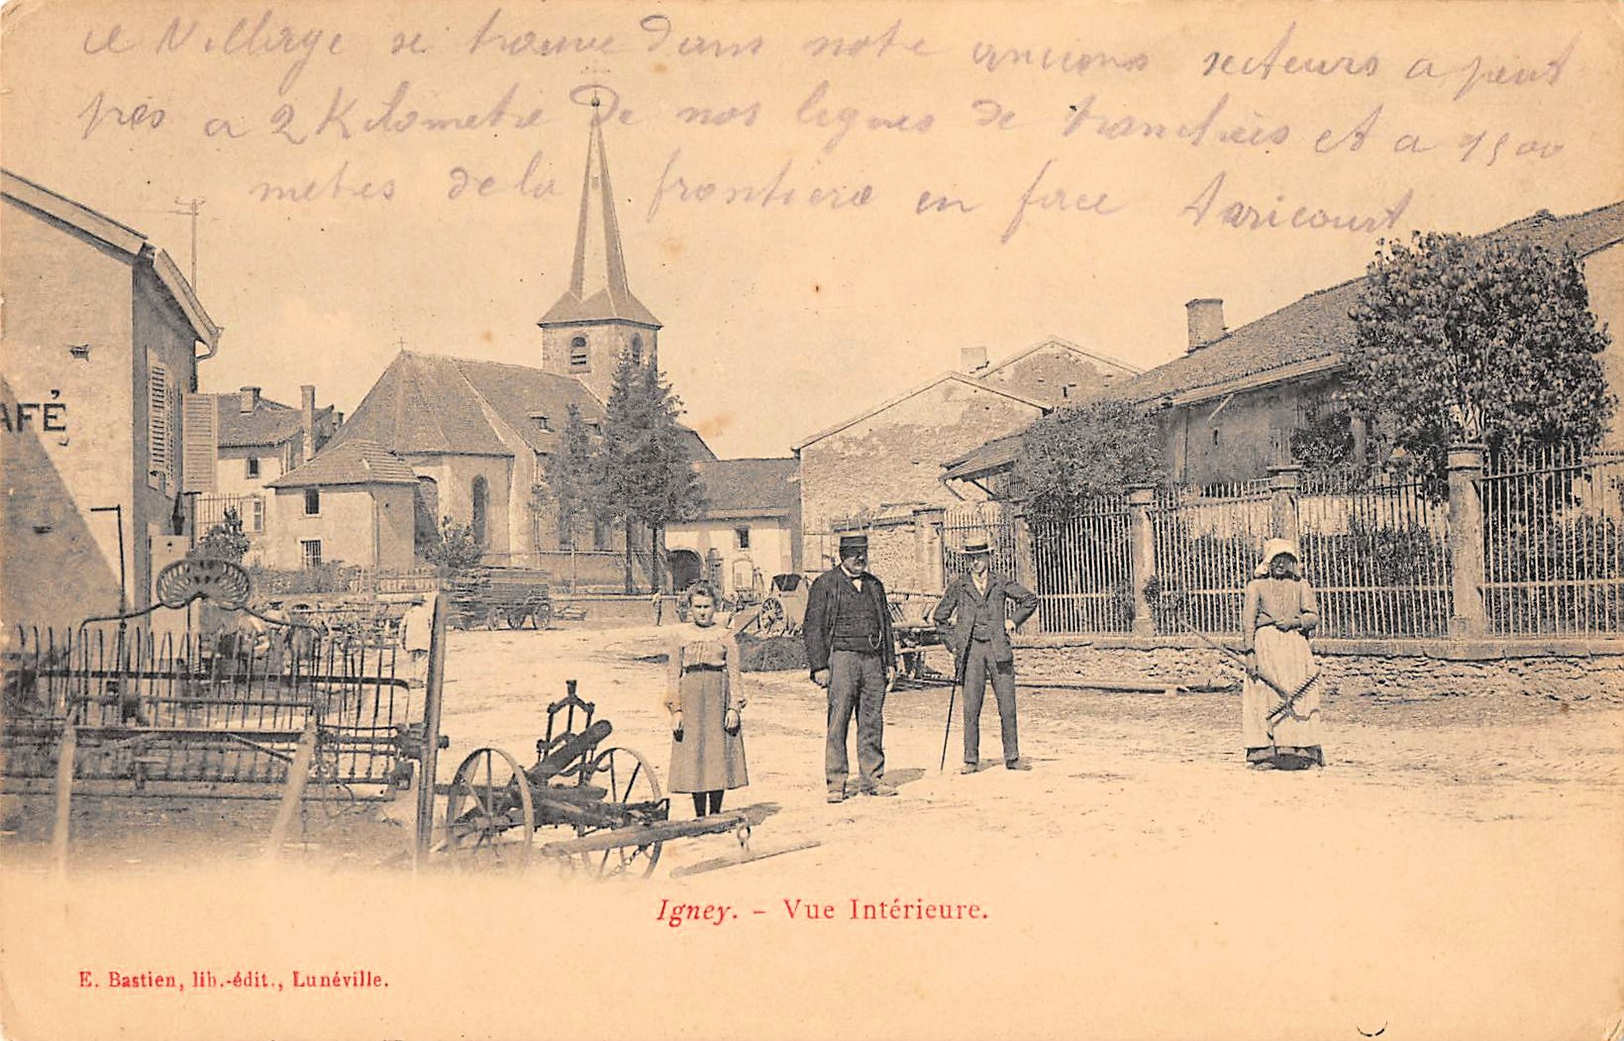 ce Village se trouve dans notre anciens secteurs a peut
près a 2 Kilometre de nos lignes de tranchées et a 1500
metres de la frontiere en face Avricourt
AFÉ
Igney. - Vue Intérieure.
E. Bastien, lib.-édit., Lunéville.